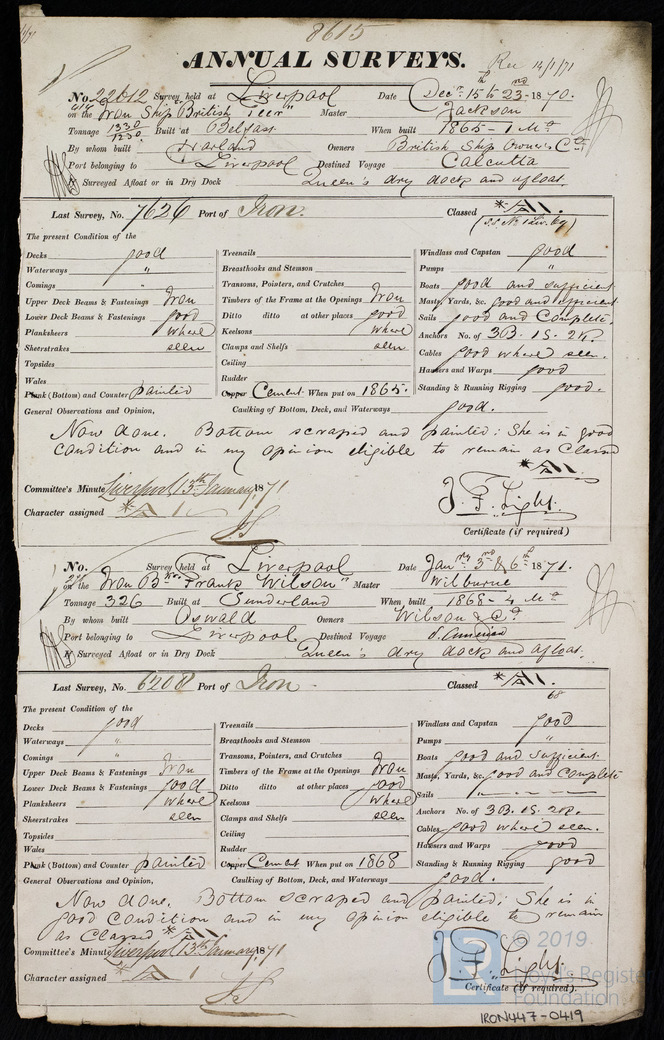 8615
ANNUAL SURVEYS.
Rec 14/1/71
No. 22012 Survey held at Liverpool Date Decr. 15th & 23rd 1870.
on the Iron Ship "British Peer" Master Jackson
Tonnage 1330 / 1230 Built at Belfast When built 1865 - 1 Mo
By whom built Harland Owners British Ship Owners Co.
Port belonging to Liverpool Destined Voyage Calcutta
If Surveyed Afloat or in Dry Dock Queen's dry dock and afloat.
Last Survey, No. 7626 Port of Iron. Classed *A1.
(S.S. No 1 Liv. 69)
The present Condition of the
Decks good
Waterways "
Comings "
Upper Deck Beams & Fastenings Iron
Lower Deck Beams & Fastenings good
Planksheers where
Sheerstrakes seen
Topsides
Wales
Plank (Bottom) and Counter painted
Treenails
Breasthooks and Stemson
Transoms, Pointers, and Crutches
Timbers of the Frame at the Openings Iron
Ditto ditto at other places good
Keelsons where
Clamps and Shelfs seen
Ceiling
Rudder
Copper Cement When put on 1865.
Windlass and Capstan good
Pumps "
Boats good and sufficient
Masts, Yards, &c. good and efficient
Sails good and Complete.
Anchors No. of 3B. 1S. 2K.
Cables good where seen.
Hawsers and Warps good
Standing & Running Rigging good.
General Observations and Opinion, Caulking of Bottom, Deck, and Waterways good.
Now done. Bottom scraped and painted: She is in good
condition and in my opinion eligible to remain as Classed
*A1.
Committee's Minute Liverpool 13th January, 1871
Character assigned *A1
J. F. Light.
Certificate (if required)
No. Survey held at Liverpool Date Jany 3rd & 6th 1871.
on the Iron Bk "Frank Wilson" Master Wilburne
Tonnage 326 Built at Sunderland When built 1868 - 4 Mo
By whom built Oswald Owners Wilson & Co
Port belonging to Liverpool Destined Voyage S. America
If Surveyed Afloat or in Dry Dock Queen's dry dock and afloat.
Last Survey, No. 6208 Port of Iron. Classed *A1.
68
The present Condition of the
Decks good
Waterways "
Comings "
Upper Deck Beams & Fastenings Iron
Lower Deck Beams & Fastenings good
Planksheers where
Sheerstrakes seen
Topsides
Wales
Plank (Bottom) and Counter painted
Treenails
Breasthooks and Stemson
Transoms, Pointers, and Crutches
Timbers of the Frame at the Openings Iron
Ditto ditto at other places good
Keelsons where
Clamps and Shelfs seen
Ceiling
Rudder
Copper Cement When put on 1868
Windlass and Capstan good
Pumps "
Boats good and sufficient
Masts, Yards, &c. good and Complete
Sails " - - -
Anchors No. of 3B. 1S. 2K.
Cables good where seen.
Hawsers and Warps good
Standing & Running Rigging good
General Observations and Opinion, Caulking of Bottom, Deck, and Waterways good.
Now done. Bottom scraped and painted: She is in
good condition and in my opinion eligible to remain
as Classed *A1
Committee's Minute Liverpool 13th January, 1871
Character assigned *A1
J. F. Light.
Certificate (if required).
© 2019
Lloyd's Register
Foundation
IRON447-0419